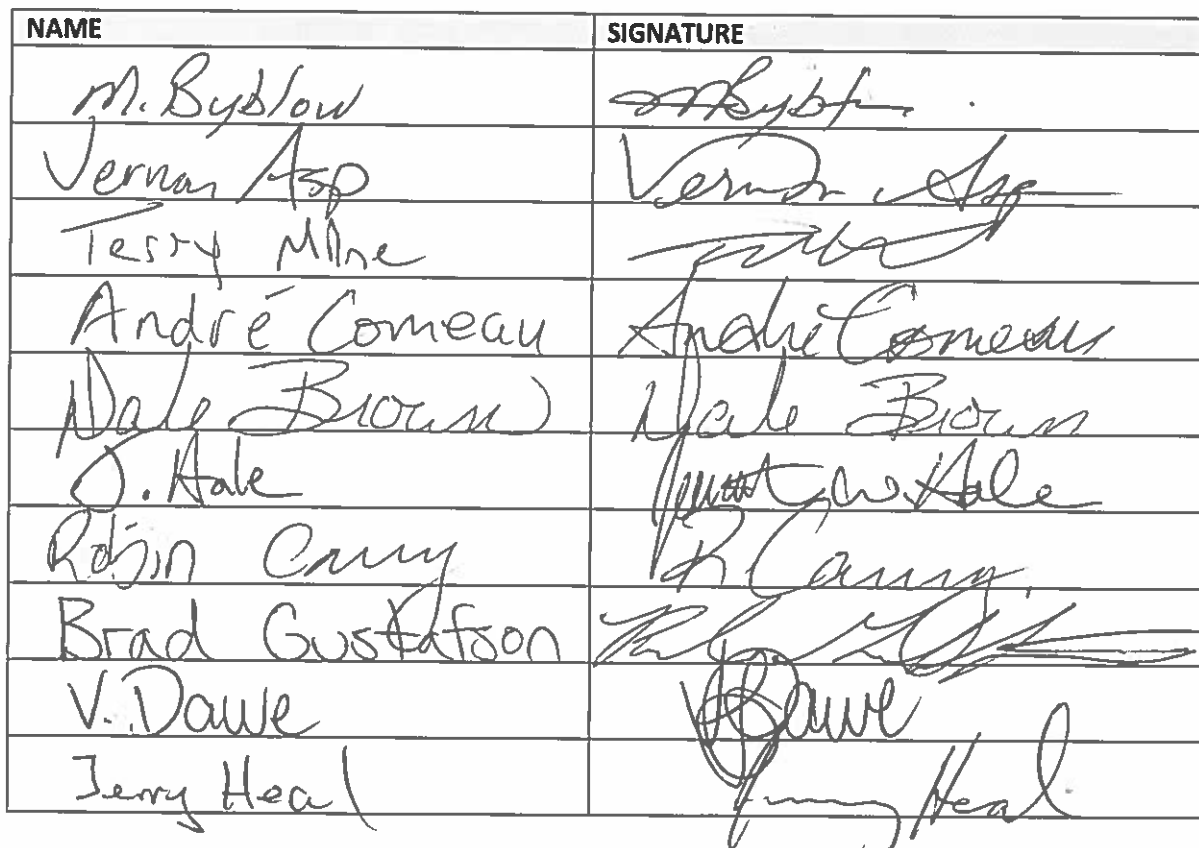 NAME SIGNATURE
M. Byblow
Vernon Asp Vernon Asp
Terry Milne
André Comeau André Comeau
Dale Brown Dale Brown
J. Hale W. Hale
Robin R
Brad Gustafson
V. Dawe Dawe
Jerry Heal Jerry Heal